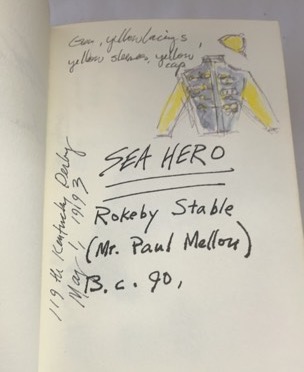 Gray, yellow facings,
yellow sleeves, yellow
cap
SEA HERO
Rokeby Stable
(Mr. Paul Mellon)
B. c. 90,
119th Kentucky Derby
May 1, 1993